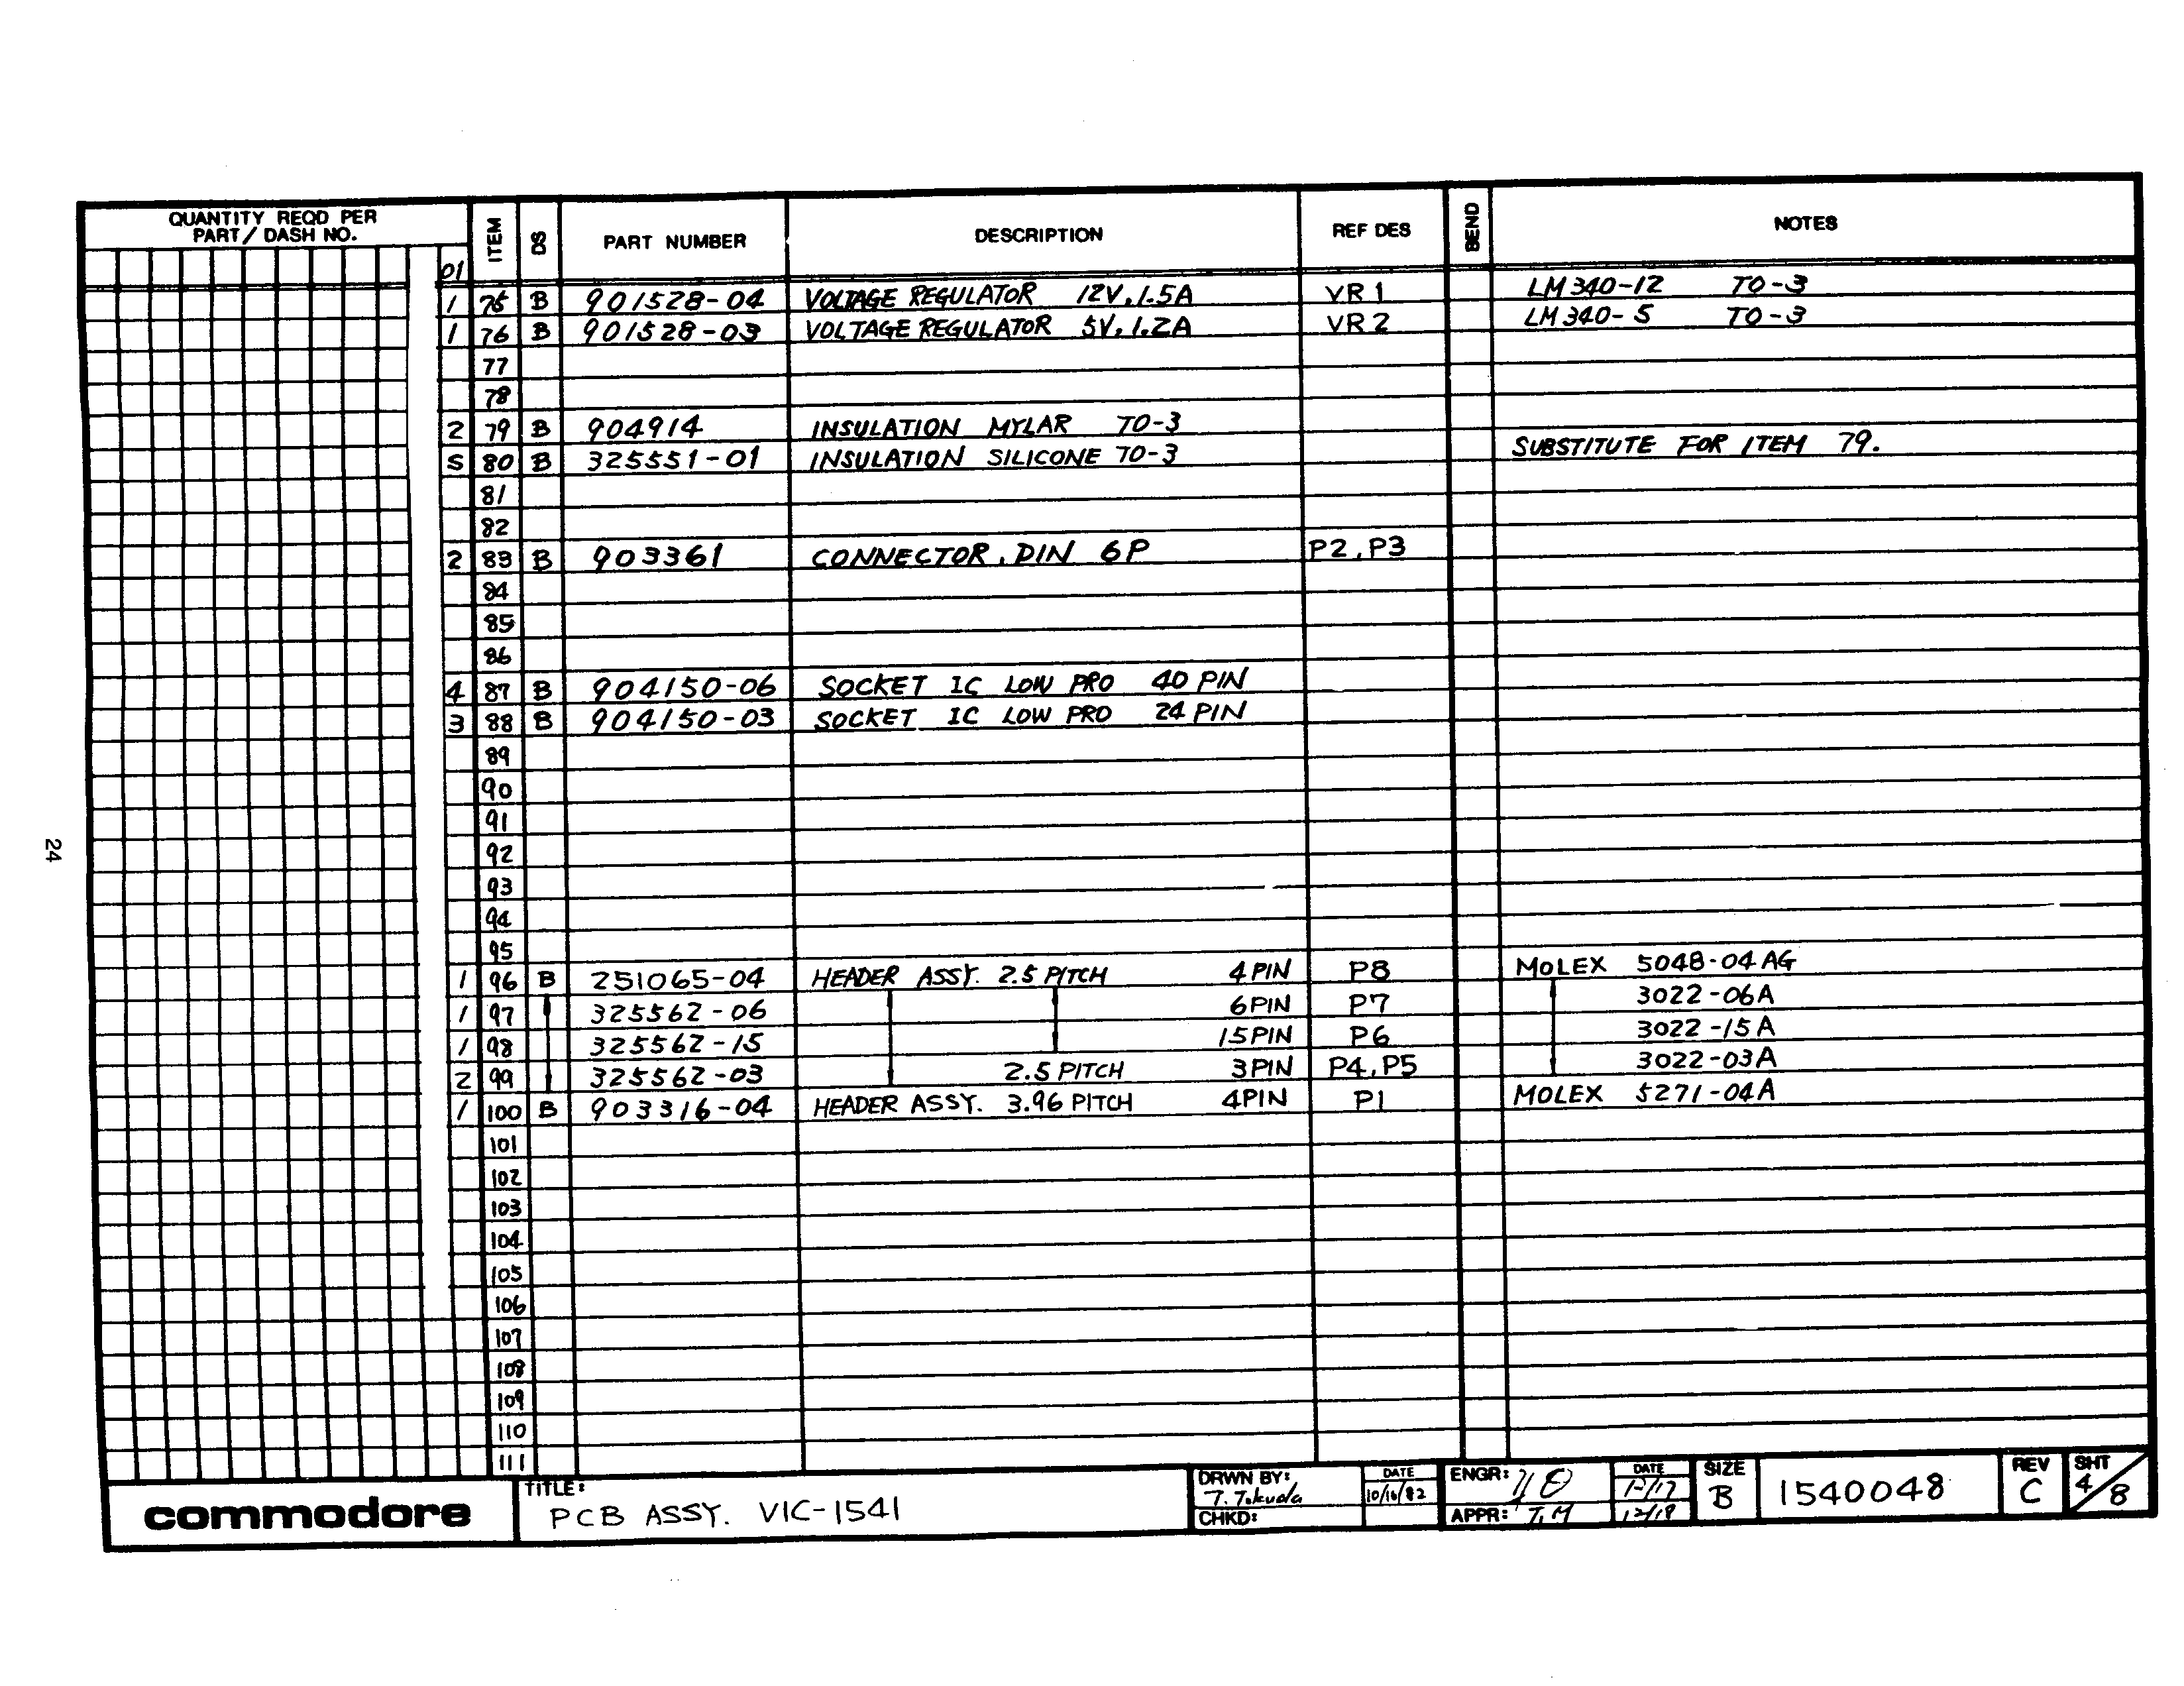 QUANTITY REQD PER
PART/ DASH NO.
01
ITEM DS PART NUMBER DESCRIPTION REF DES BEND NOTES
1 75 B 901528-04 VOLTAGE REGULATOR 12V,1.5A VR1 LM340-12 TO-3
1 76 B 901528-03 VOLTAGE REGULATOR 5V,1.2A VR2 LM340-5 TO-3
77
78
2 79 B 904914 INSULATION MYLAR TO-3
S 80 B 325551-01 INSULATION SILICONE TO-3 SUBSTITUTE FOR ITEM 79.
81
82
2 83 B 903361 CONNECTOR, DIN 6P P2,P3
84
85
86
4 87 B 904150-06 SOCKET IC LOW PRO 40 PIN
3 88 B 904150-03 SOCKET IC LOW PRO 24 PIN
89
90
91
92
93
94
95
1 96 B 251065-04 HEADER ASSY. 2.5 PITCH 4PIN P8 MOLEX 5048-04AG
1 97 325562-06 6PIN P7 3022-06A
1 98 325562-15 15PIN P6 3022-15A
2 99 325562-03 2.5 PITCH 3PIN P4,P5 3022-03A
1 100 B 903316-04 HEADER ASSY. 3.96 PITCH 4PIN P1 MOLEX 5271-04A
101
102
103
104
105
106
107
108
109
110
111
24
commodore
TITLE:
PCB ASSY. VIC-1541
DRWN BY: T. Tokuda
DATE 10/16/82
CHKD:
ENGR:
DATE 12/17
APPR: T.M 12/18
SIZE B
1540048
REV C
SHT 4/8